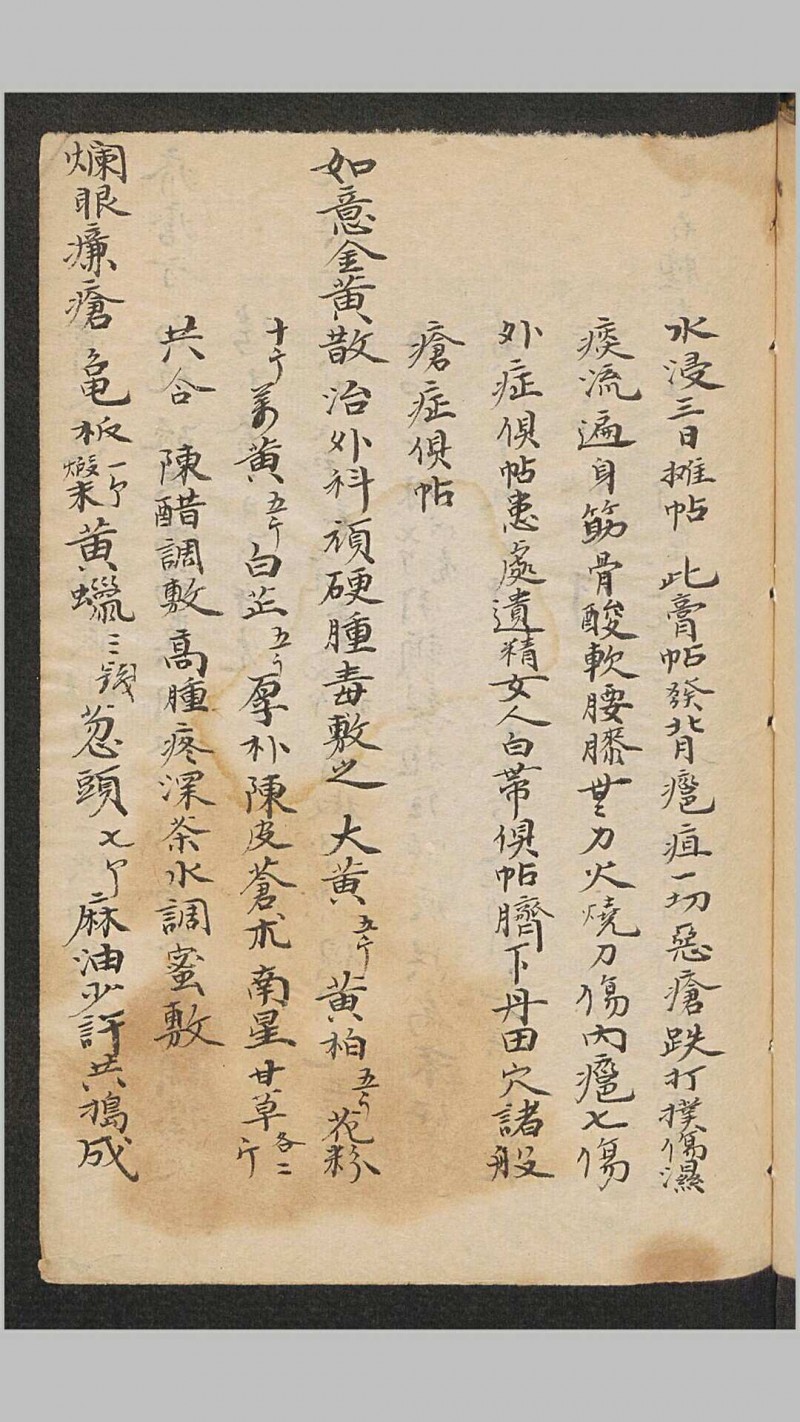 水浸三日攤帖 此膏帖發背癰疽一切惡瘡跌打撲傷濕
痰流遍身筋骨酸軟腰膝無力火燒刀傷內癰七傷
外症俱帖患處遺精女人白帶俱帖臍下丹田穴諸般
瘡症俱帖
如意金黃散治外科頑硬腫毒敷之 大黃五斤黃柏五斤花粉
十斤姜黃五斤白芷五斤厚朴陳皮蒼朮南星甘草各二斤
共合 陳醋調敷高腫疼深茶水調蜜敷
爛眼癉瘡 龟板一两煅末黃蠟三錢葱頭七个麻油少許共搗成